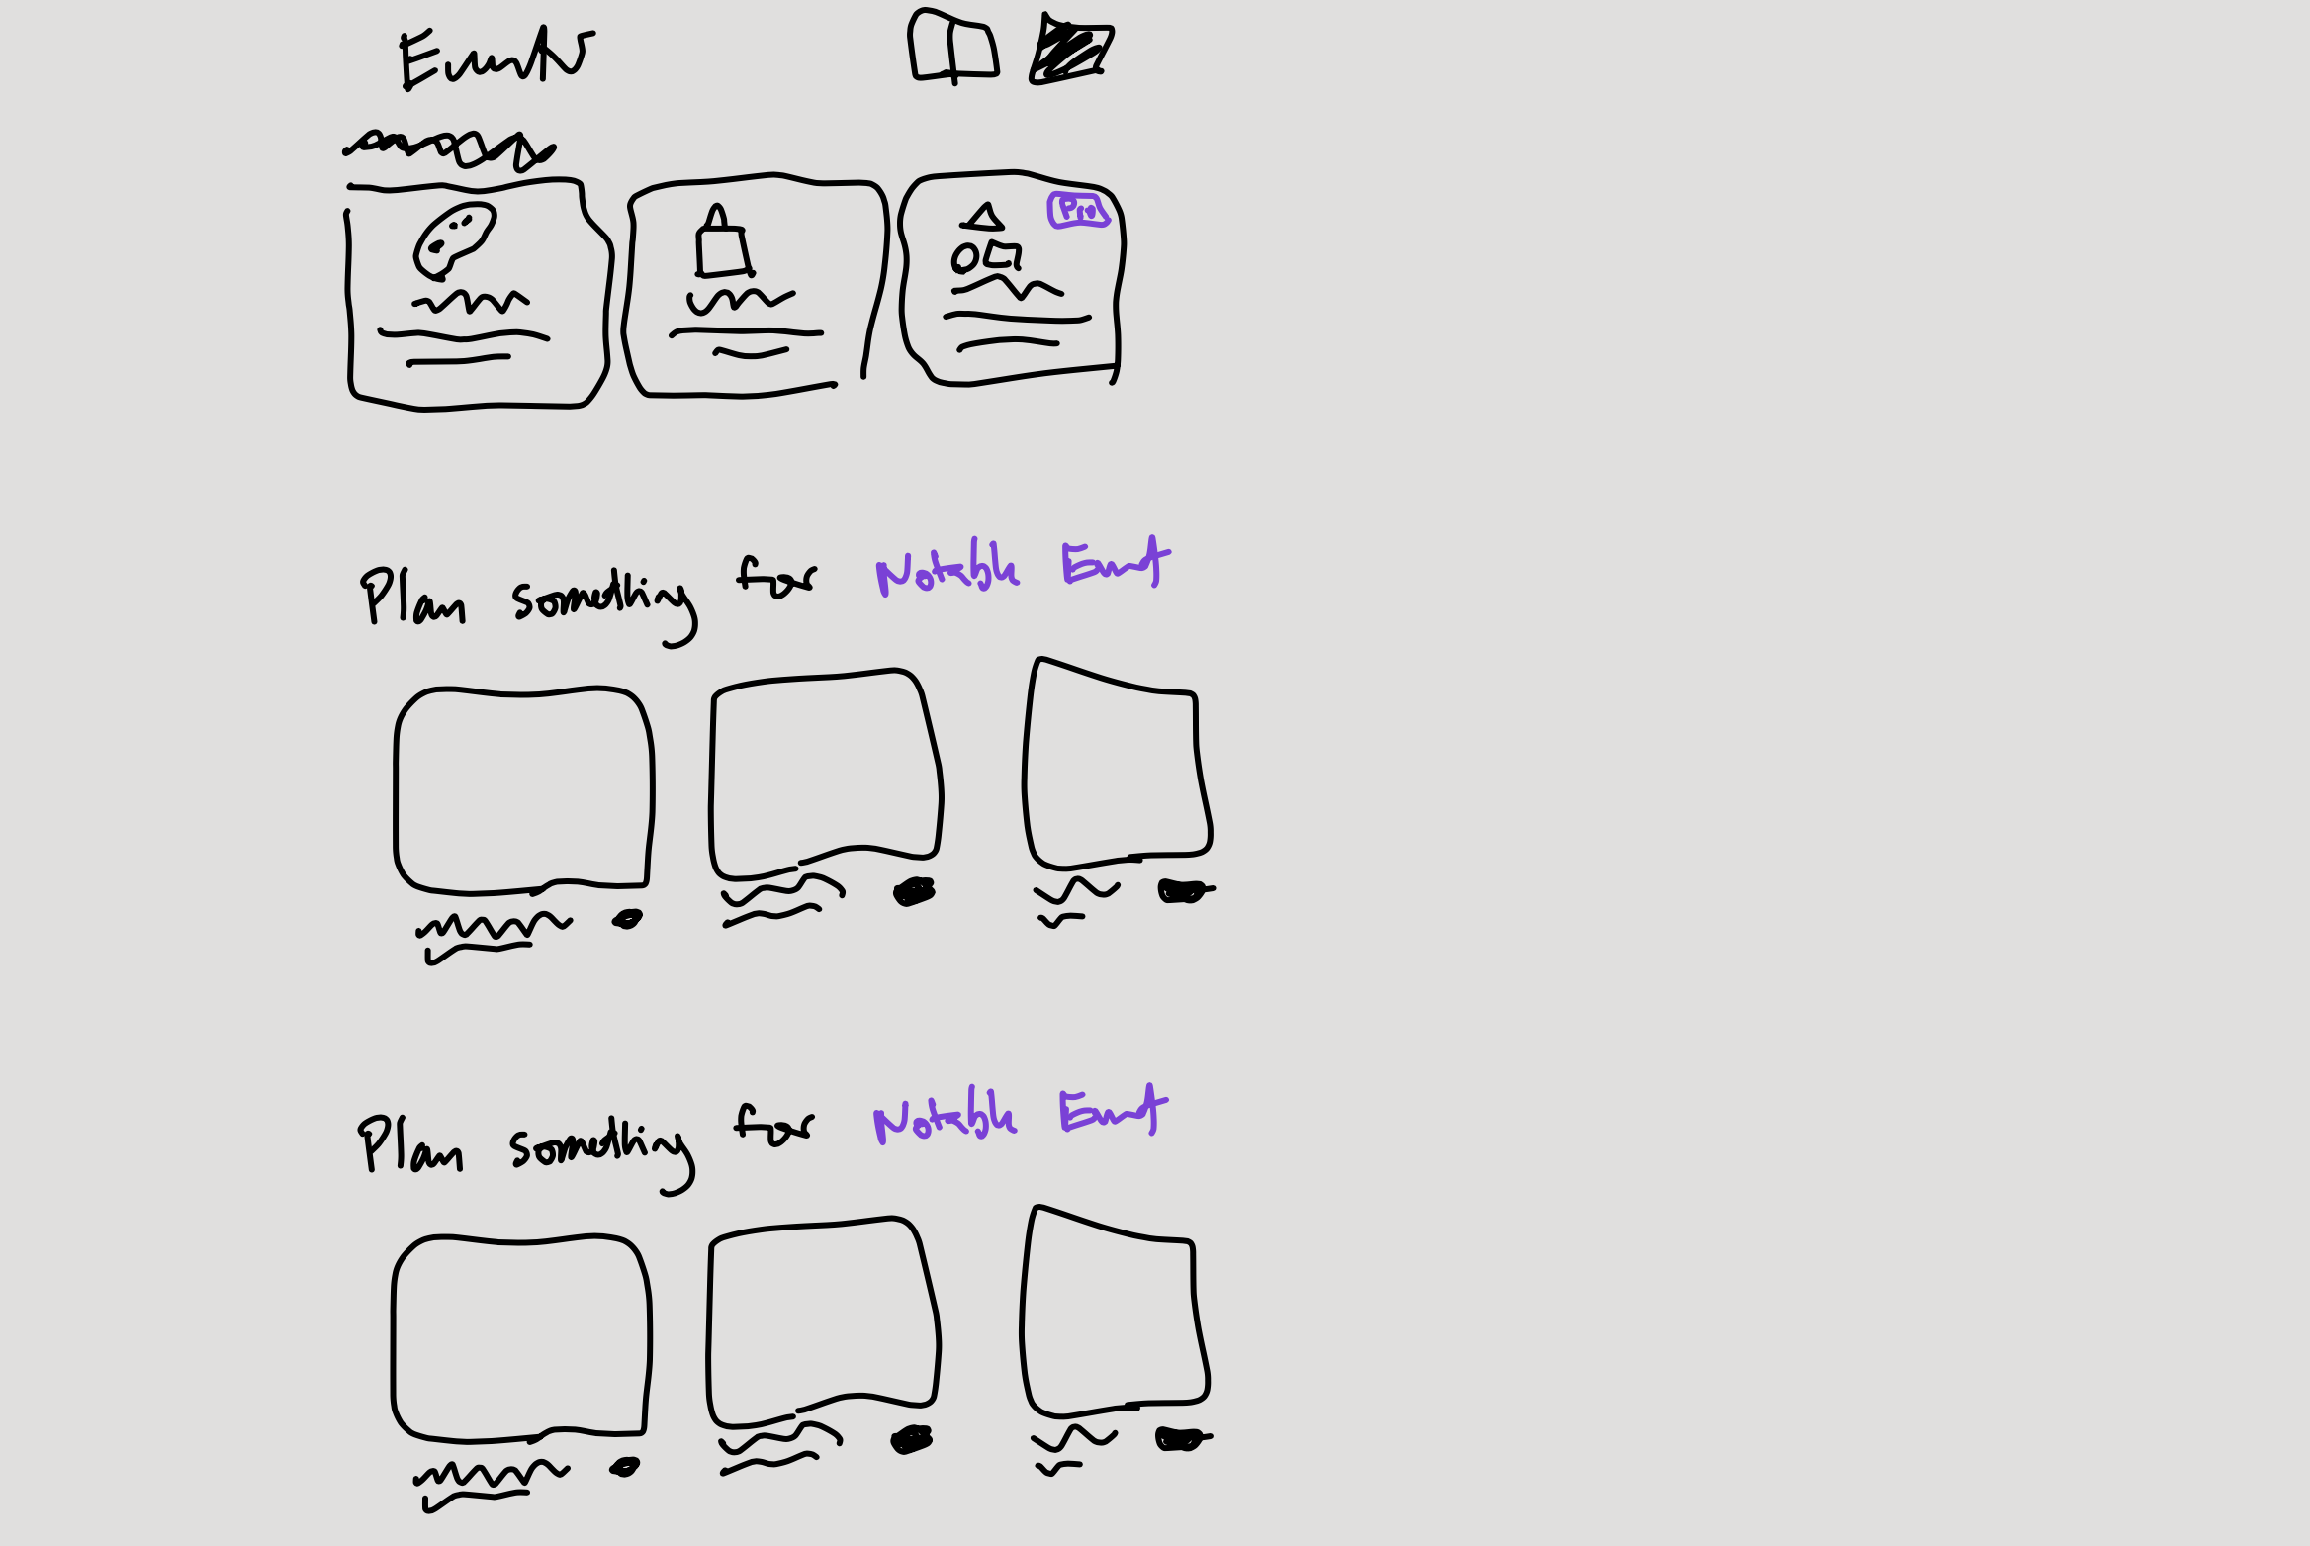 Events
Pro
Plan something for Notable Event
Plan something for Notable Event